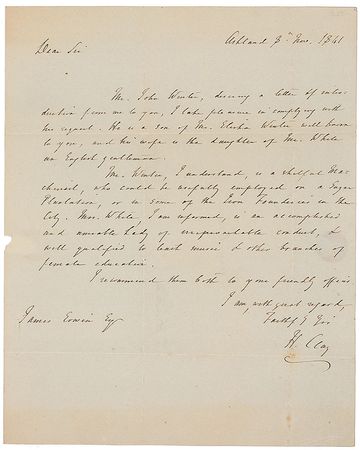 Ashland 3d. Nov. 1841
Dear Sir
Mr. John Winter, desiring a letter of intro-
duction from me to you, I take pleasure in complying with
his request. He is a son of Mr. Elisha Winter well known
to you, and his wife is the daughter of Mr. White
an English gentleman.
Mr. Winter, I understand, is a skilful Ma-
chinist, who could be usefully employed on a Sugar
Plantation, or in some of the Iron Founderies in the
City. Mrs. White, I am informed, is an accomplished
and amiable Lady of irreproachable conduct, &
well qualified to teach music & other branches of
female education.
I recommend them both to your friendly offices
I am, with great regard,
Faithfy Yrs
H. Clay
James Erwin Esqr